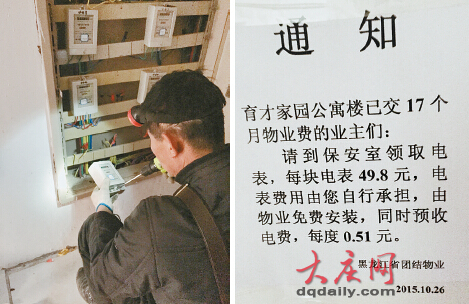 通知
育才家园公寓楼已交17个
月物业费的业主们：
请到保安室领取电
表，每块电表49.8元，电
表费用由您自行承担，由
物业免费安装，同时预收
电费，每度0.51元。
黑龙江省团结物业
2015.10.26
大庆网
dqdaily.com